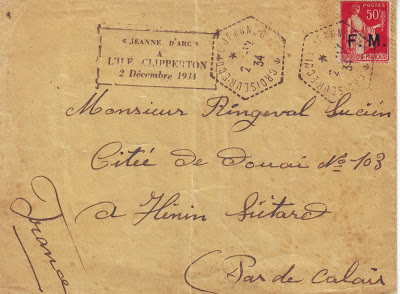 « JEANNE D'ARC »
A
L'ILE CLIPPERTON
2 Décembre 1934
CROISEUR-ECOLE
2 -12
34
CROISEUR-ECOLE
2
34
50c
F. M.
Monsieur Ringeval Lucien
Citée de Douai No 103
a Hénin Liétard
(Pas de Calais
France